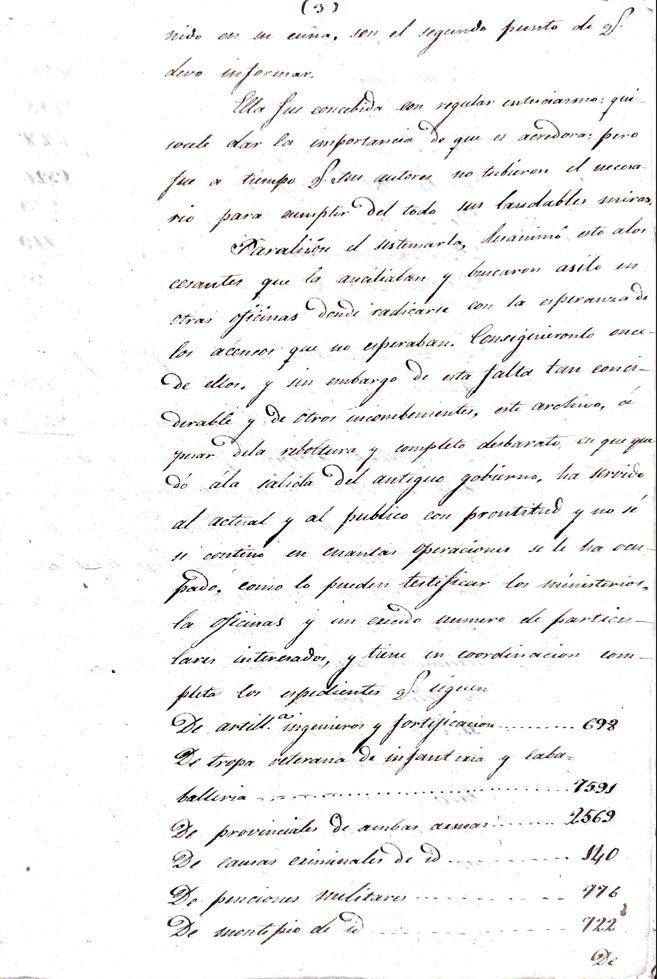 (3)
nido en su cuna, son el segundo punto de q.
devo informar.
Ella fue concebida con regular entuciasmo: qui-
socele dar la importancia de que es acredora: pero
fue a tiempo q. sus autores no tubieron el necesa-
rio para cumplir del todo sus laudables miras.
Paralisóse el sistemarla, desanimó esto alos
cesantes que la auciliaban y buscaron asilo en
otras oficinas donde radicarse con la esperanza de
los acensos que no esperaban. Consiguieronlo once
de ellos, y sin embargo de esta falta tan conci-
derable y de otros incombenientes, este archivo, á
pesar dela reboltura y completo desbarato, en que que
dó ála salida del antiguo gobierno, ha servido
al actual y al publico con prontitud y no sé
se contiño en cuantas operaciones se le ha ocu-
pado, como lo pueden testificar los ministerios,
la oficinas y un crecido numero de particu-
lares interesados, y tiene en coordinacion com-
pleta los espedientes q. siguen
De artill.a ingenieros y fortificacion .......... 698
De tropa veterana de infanteria y caba-
balleria .......... 7591
De provinciales de ambas armas .......... 2569
De causas criminales de id .......... 140
De penciones militares .......... 776
De montepio de id .......... 722
De